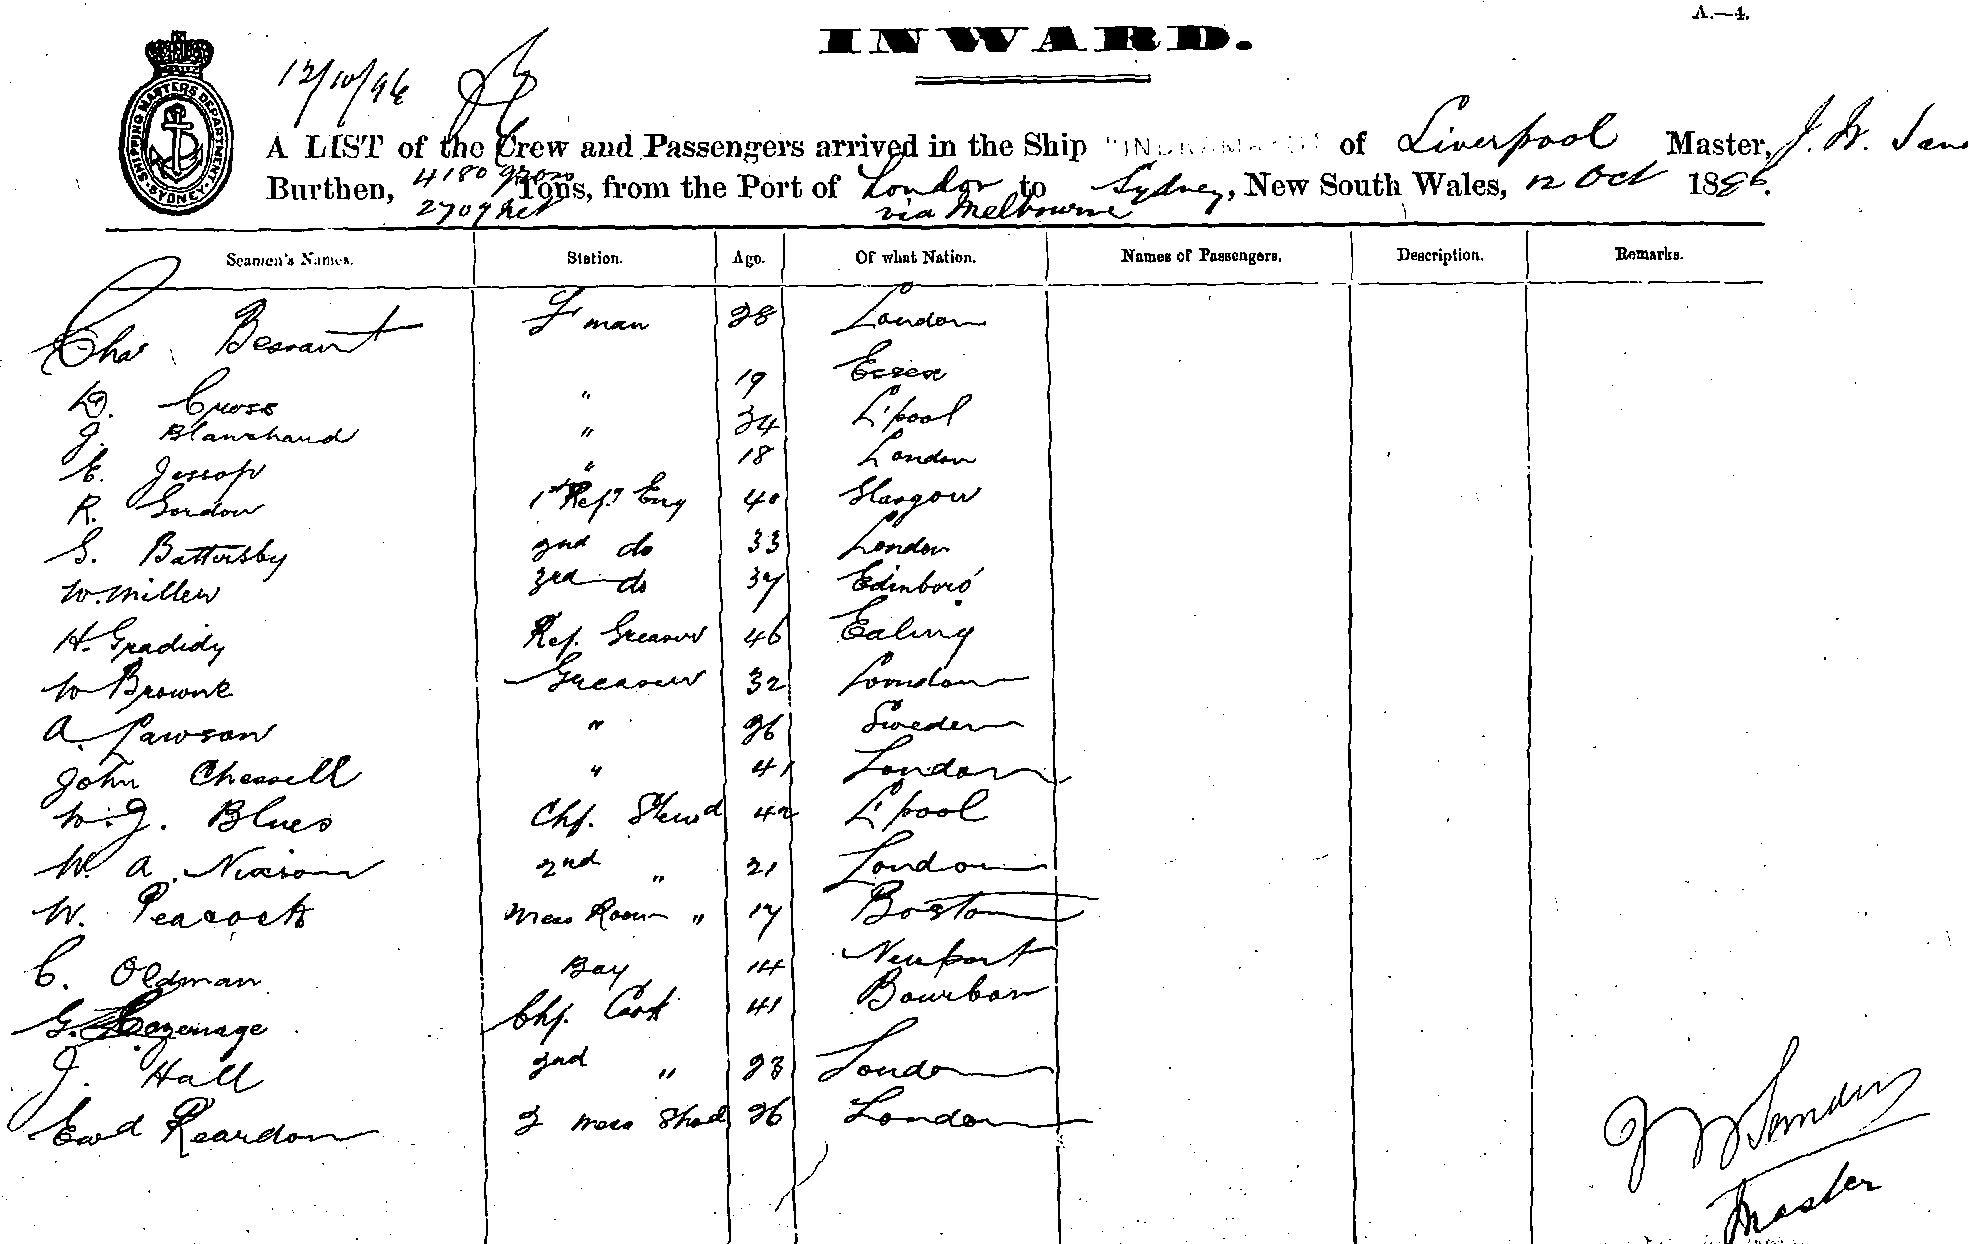 A.—4.
INWARD.
12/10/96
SHIPPING MASTERS DEPARTMENT SYDNEY
A LIST of the Crew and Passengers arrived in the Ship of Liverpool Master, J. W.
Burthen, 4180 gross Tons, from the Port of London to Sydney, New South Wales, 12 Oct 1896.
2709 net via Melbourne
Seamen's Names. Station. Age. Of what Nation. Names of Passengers. Description. Remarks.
Chas Bessant F'man 38 London
D. Cross " 19 Essex
J. Blanchard " 34 L'pool
E. Jessop " 18 London
R. Gordon 1st Refr Eng 40 Glasgow
S. Battersby 2nd do 33 London
W. Miller 3rd do 37 Edinboro'
H. Gradidy Ref. Greaser 46 Ealing
W Browne Greaser 32 London
A. Lawson " 36 Sweden
John Chessell " 41 London
W. J. Blues Chf. Stewd 42 L'pool
W. A. Nixson 2nd " 21 London
W. Peacock Mess Room " 17 Boston
C. Oldman Boy 14 Newport
G. Chf. Cook 41 Bourbon
J. Hall 2nd " 23 London
Ewd Reardon Mess 26 London
Master